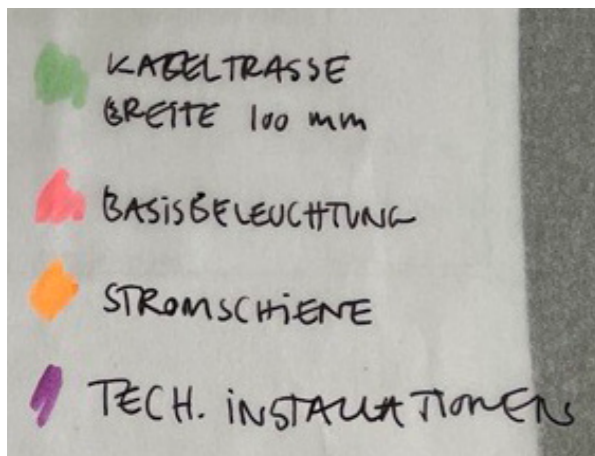 KABELTRASSE
BREITE 100 mm
BASISBELEUCHTUNG
STROMSCHIENE
TECH. INSTALLATIONEN